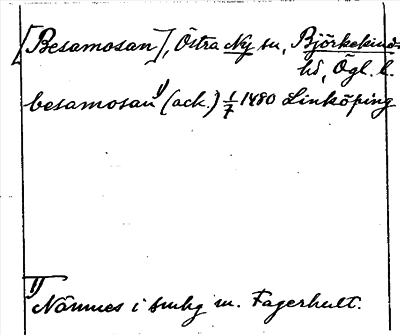 [Besamosan], Östra Ny sn, Björkekinds
hd, Ögl. l.
besamosan 1) (ack.) 1/7 1480 Linköping
1) Nämnes i smhg m. Fagerhult.